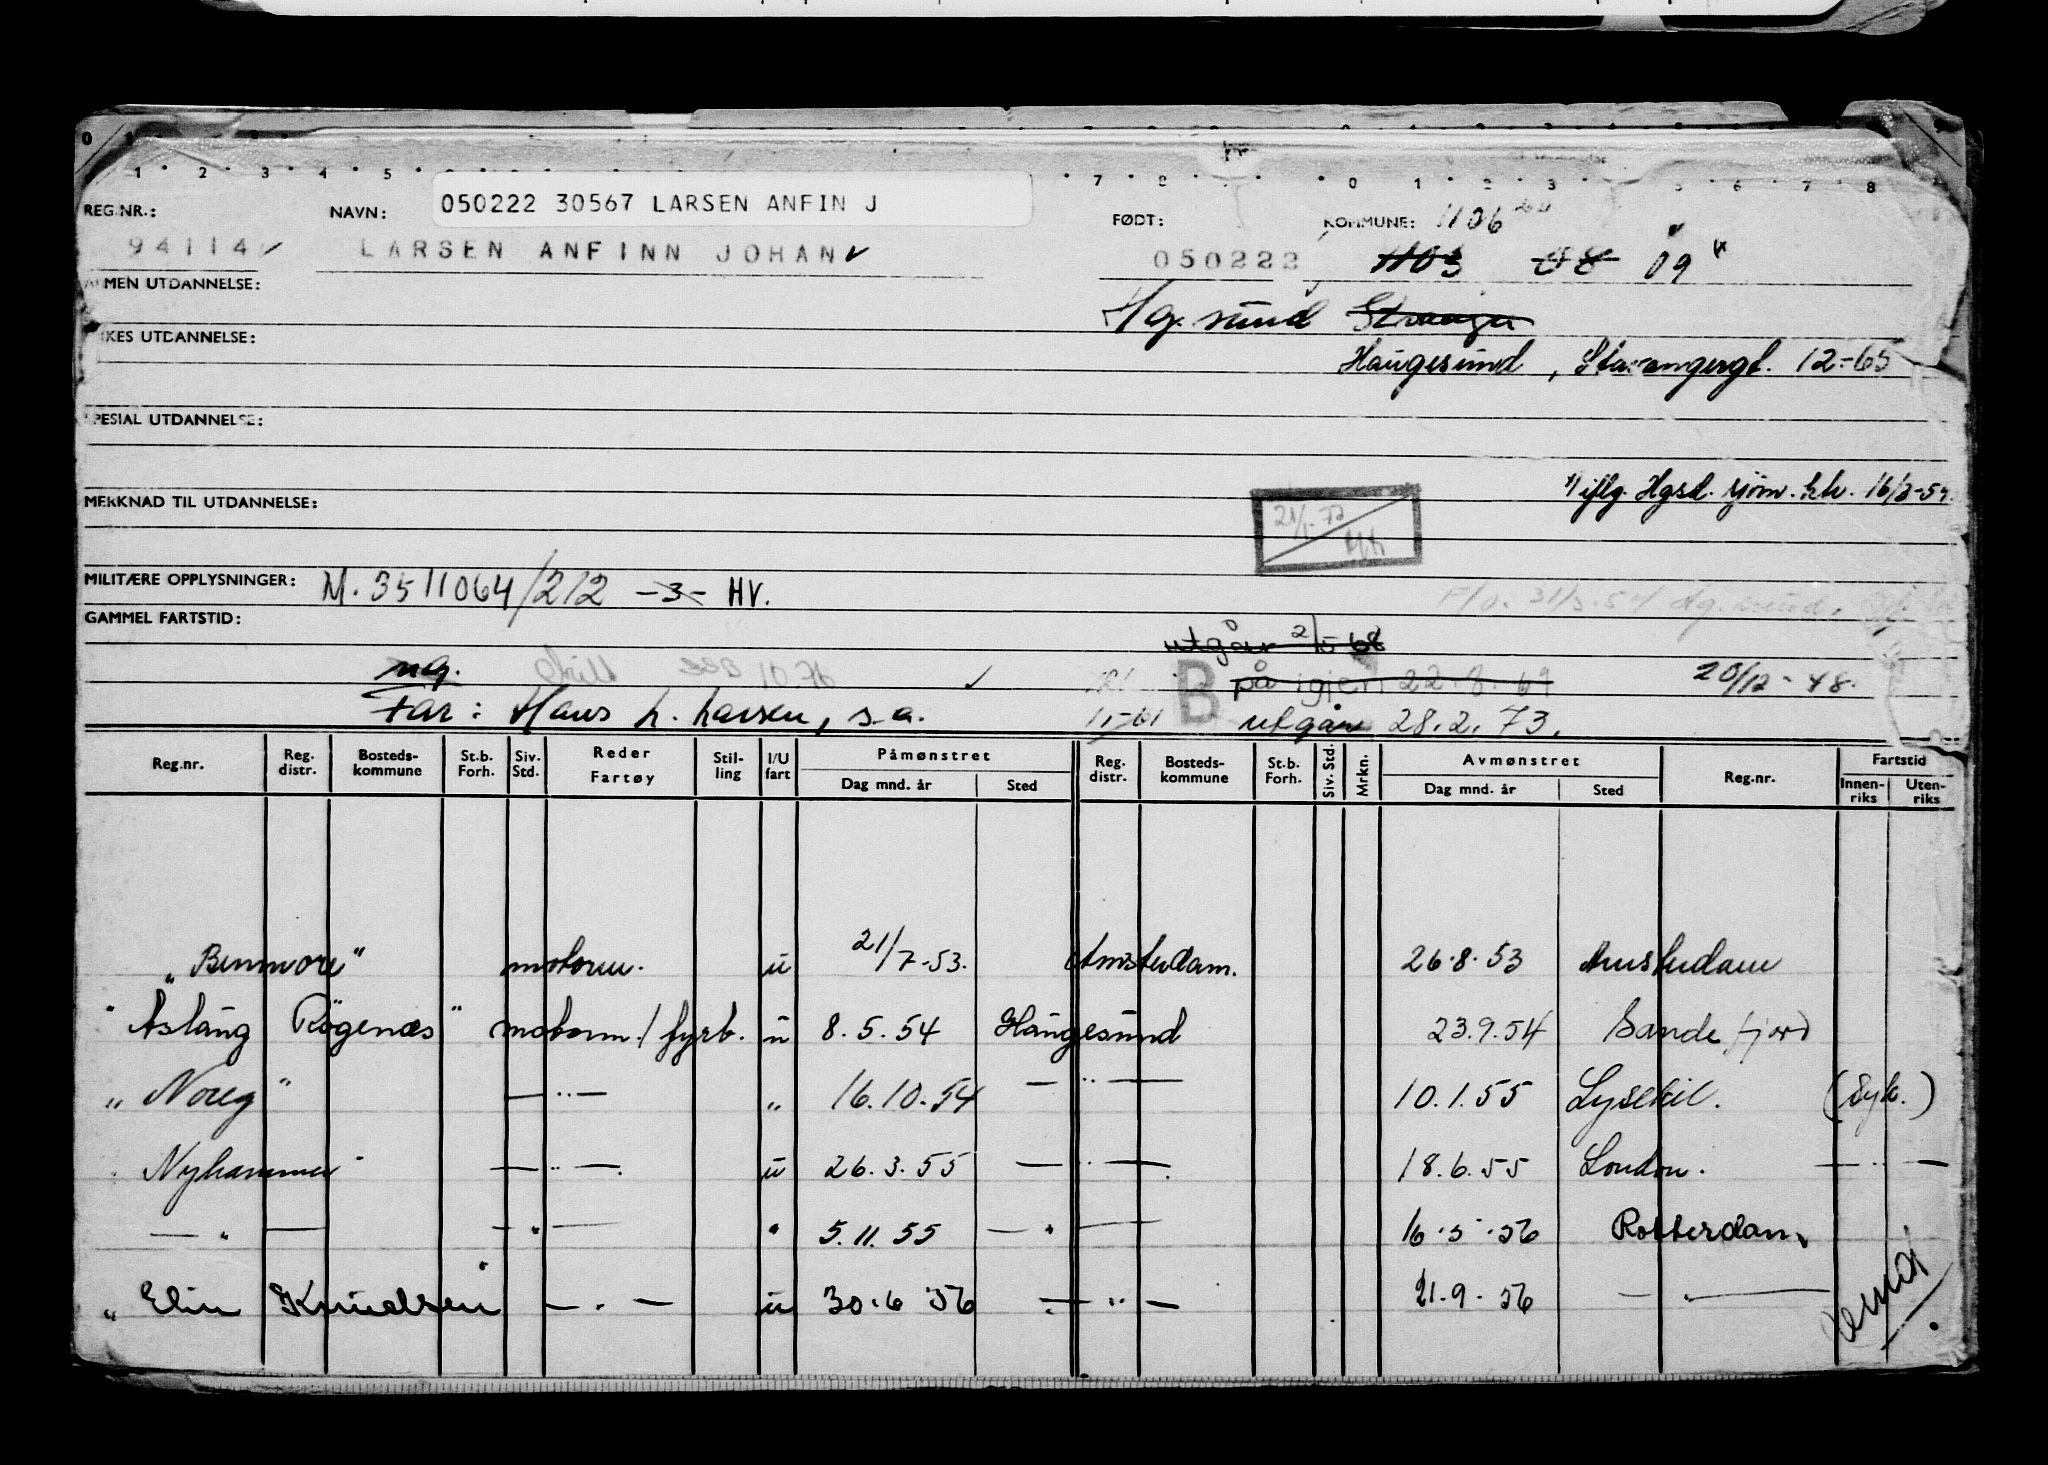 REG.NR.: NAVN: 050222 30567 LARSEN ANFIN J FØDT: KOMMUNE: 1106
94114 LARSEN ANFINN JOHAN 050222 1103 08 09
MEN UTDANNELSE:
Hg. sund Stavanger
KES UTDANNELSE:
Haugesund, Stavangergt. 12-65
PESIAL UTDANNELSE:
MERKNAD TIL UTDANNELSE: iflg. Hgsd. sjøm. 16/3-54.
21/1-72
MILITÆRE OPPLYSNINGER: M. 3511064/212 -3- HV.
F/O. 31/3.54 Hg.sund.
GAMMEL FARTSTID:
utgår 2/5 68
ug. 10.76 B på igjen 22.8.69 20/12-48.
Far: Hans L. Larsen, s.a. 11-61 utgår 28.2.73.
Reg.nr. Reg. distr. Bosteds-kommune St.b. Forh. Siv. Std. Reder Fartøy Stil-ling I/U fart Påmønstret Dag mnd. år Sted Reg. distr. Bosteds-kommune St.b. Forh. Siv. Std. Mrkn. Avmønstret Dag mnd. år Sted Reg.nr. Fartstid Innen-riks Uten-riks
„Benmore" motorm. u 21/7-53. Amsterdam. 26.8.53 Amsterdam
"Aslaug Rögenæs" motorm./fyrb. u 8.5.54 Haugesund 23.9.54 Sandefjord
„Noreg" —"— „ 16.10.54 —"— 10.1.55 Lysekil. (syk.)
Nyhammer" —"—. u 26.3.55 —"—. 18.6.55 London. —"—
—"— —"— " 5.11.55 —"— 16.5.56 Rotterdam.
„Elin Knudsen" —"— u 30.6.56 —"— 21.9.56 —"—